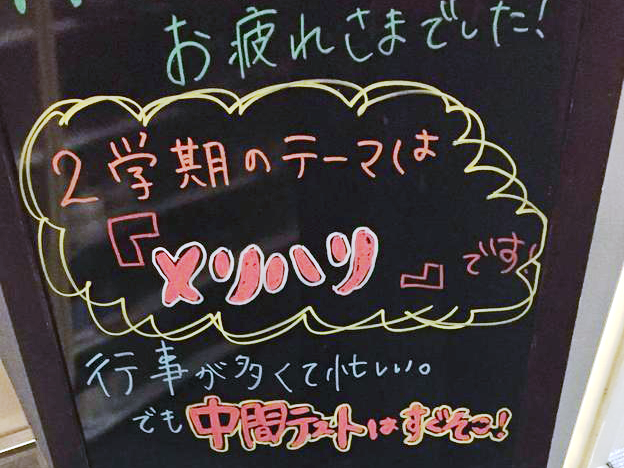 お疲れさまでした!
2学期のテーマは
『メリハリ』です!
行事が多くて忙しい。
でも中間テストはすぐそこ!